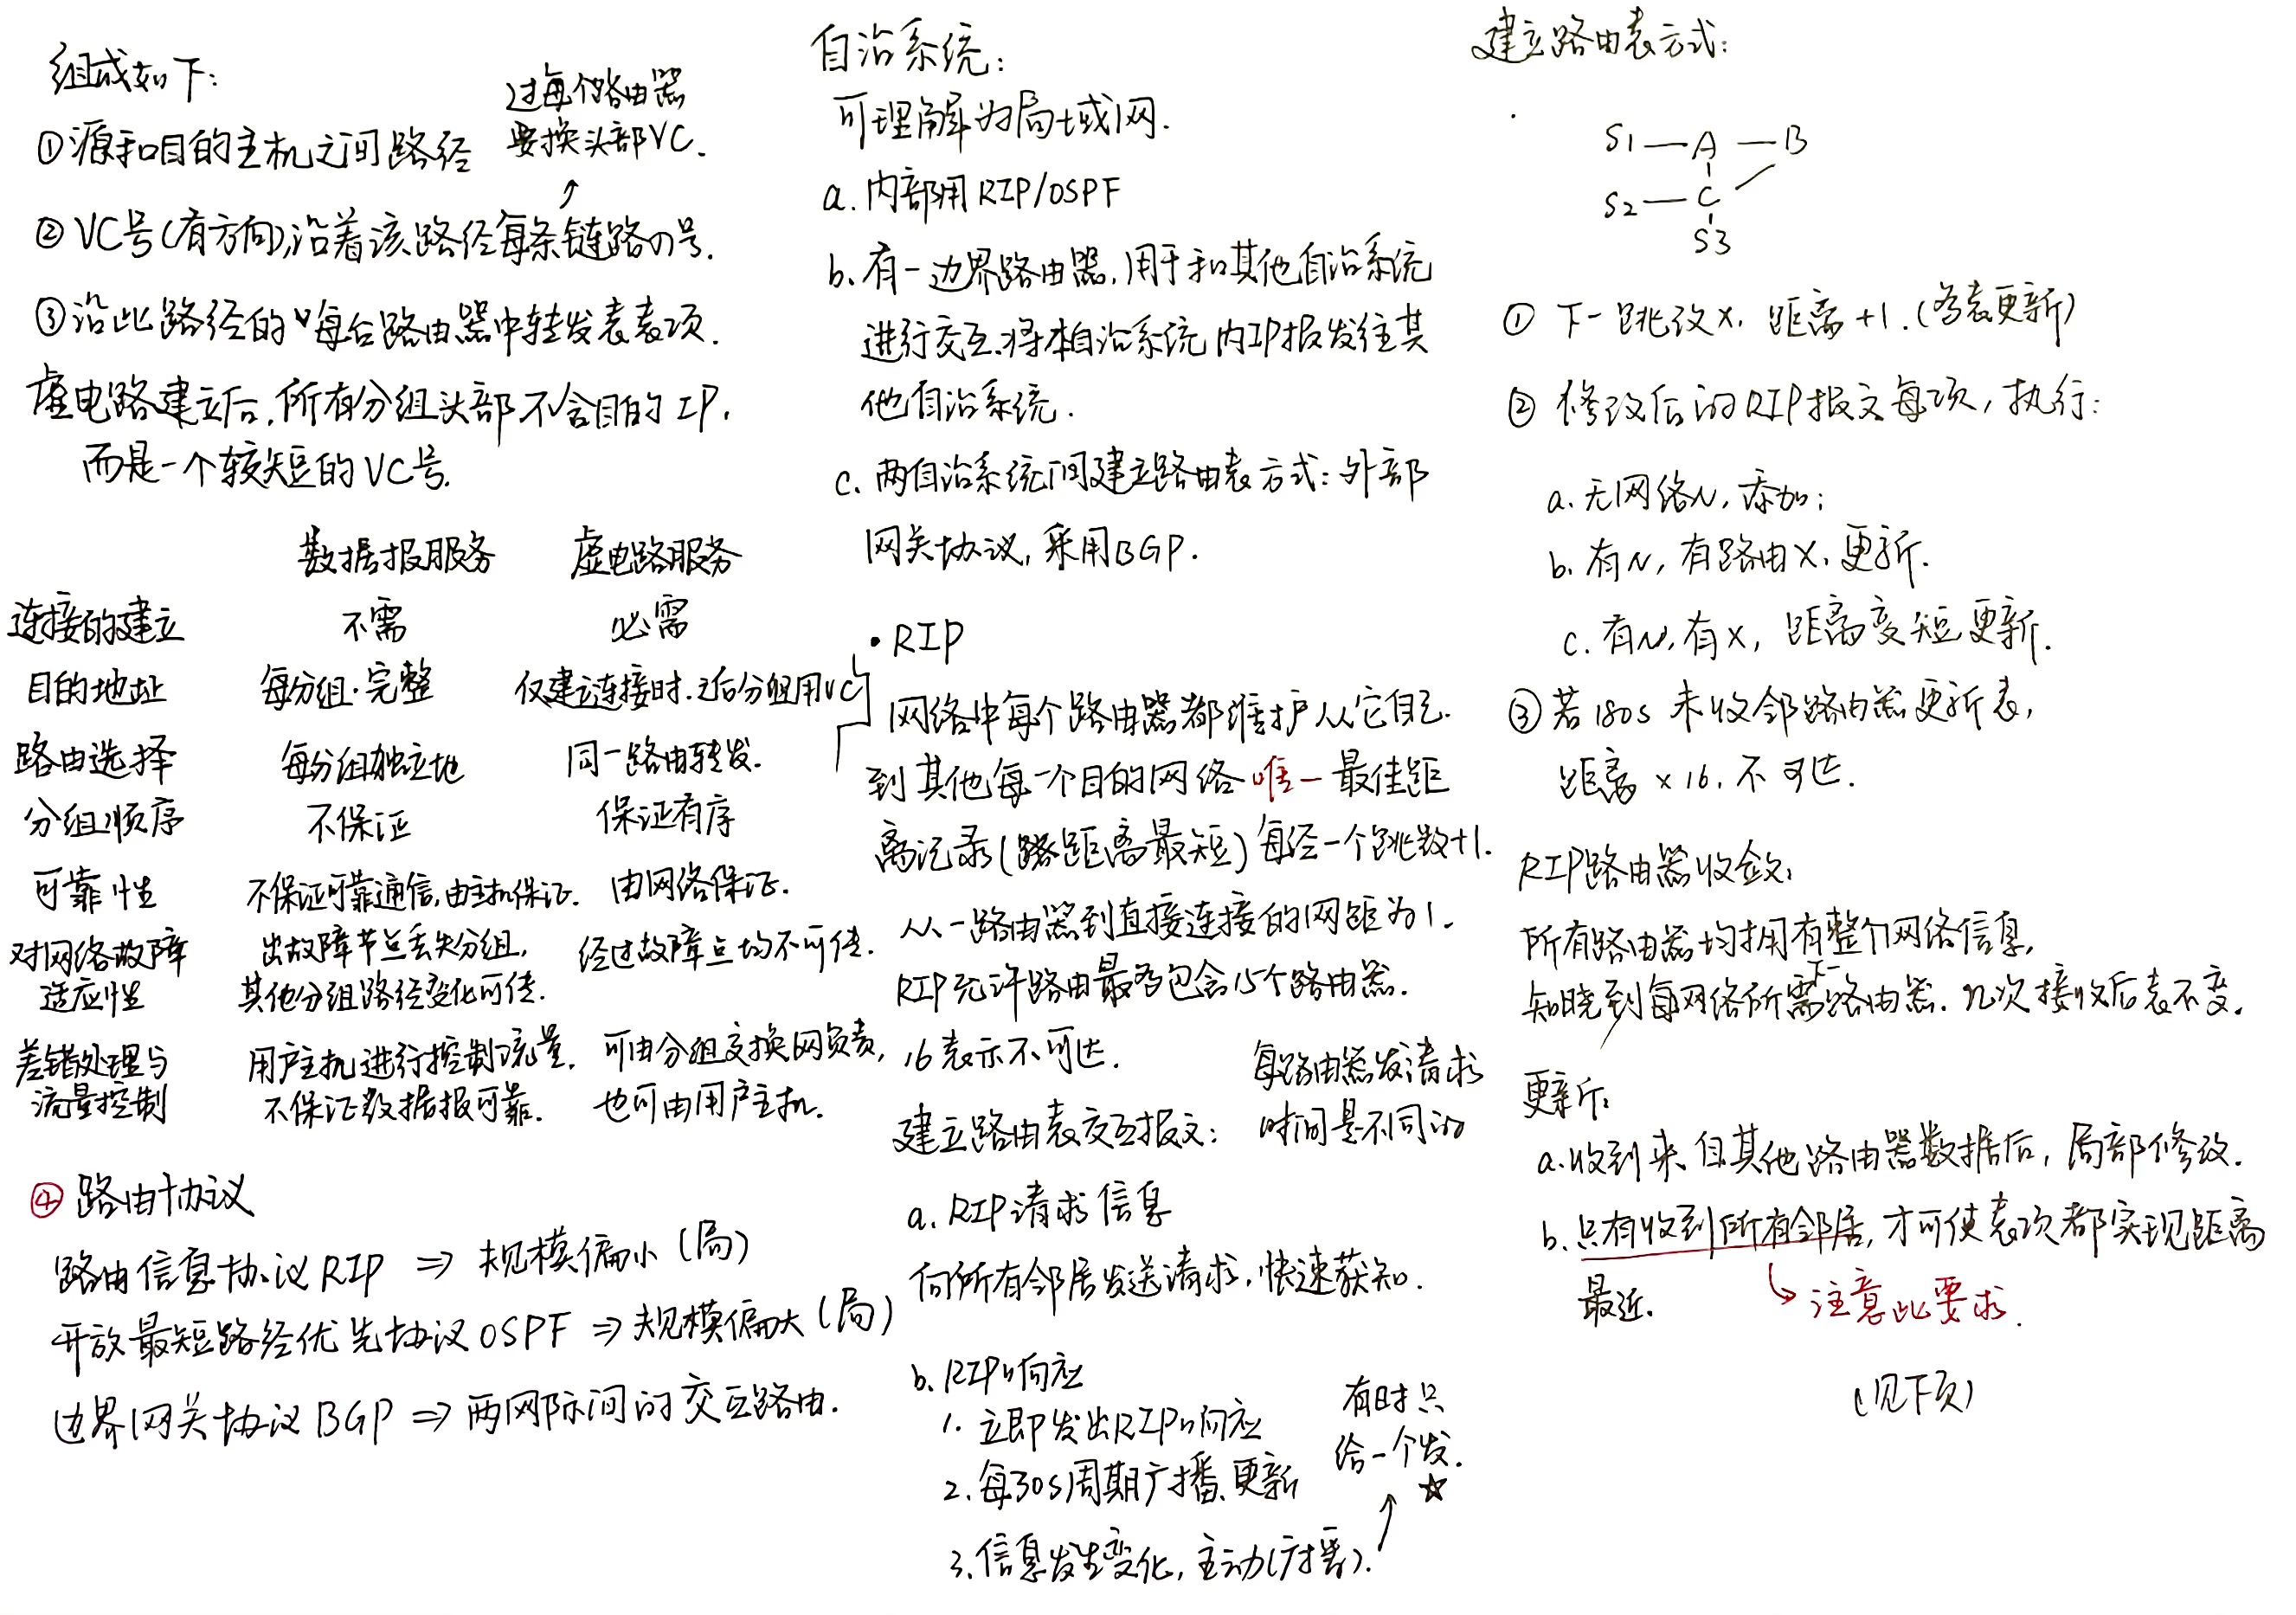 组成如下:
过每个路由器
要换头部VC.
①源和目的主机之间路径
②VC号(有方向),沿着该路径每条链路的号.
③沿此路径的每台路由器中转发表表项.
虚电路建立后,所有分组头部不含目的IP,
而是一个较短的VC号.
数据报服务 虚电路服务
连接的建立 不需 必需
目的地址 每分组·完整 仅建立连接时.之后分组用VC
路由选择 每分组独立地 同一路由转发.
分组顺序 不保证 保证有序
可靠性 不保证可靠通信,由主机保证. 由网络保证.
对网络故障 出故障节点丢失分组, 经过故障点均不可传.
适应性 其他分组路径变化可传.
差错处理与 用户主机进行控制流量. 可由分组交换网负责,
流量控制 不保证数据报可靠. 也可由用户主机.
④路由协议
路由信息协议RIP ⇒ 规模偏小(局)
开放最短路径优先协议OSPF ⇒ 规模偏大(局)
边界网关协议BGP ⇒ 两网际间的交互路由.
自治系统:
可理解为局域网.
a.内部用RIP/OSPF
b.有一边界路由器,用于和其他自治系统
进行交互.将本自治系统内IP报发往其
他自治系统.
c.两自治系统间建立路由表方式:外部
网关协议,采用BGP.
·RIP
网络中每个路由器都维护从它自己
到其他每一个目的网络唯一最佳距
离记录(路距离最短)每经一个跳数+1.
从一路由器到直接连接的网距为1.
RIP允许路由最多包含15个路由器.
16表示不可达.
每路由器发请求
时间是不同的
建立路由表交互报文:
a.RIP请求信息
向所有邻居发送请求,快速获知.
b.RIP响应
1.立即发出RIP响应
2.每30s周期广播、更新
3.信息发生变化,主动(广播).
有时只
给一个发.
☆
建立路由表方式:
S1—A—B
S2—C
S3
①下一跳改X,距离+1.(为表更新)
②修改后的RIP报文每项,执行:
a.无网络N,添加;
b.有N,有路由X,更新.
c.有N,有X,距离变短更新.
③若180s未收邻路由器更新表,
距离×16,不可达.
RIP路由器收敛:
所有路由器均拥有整个网络信息,
知晓到每网络所需下一路由器.几次接收后表不变.
更新:
a.收到来自其他路由器数据后,局部修改.
b.只有收到所有邻居,才可使表项都实现距离
最近.
注意此要求.
(见下页)